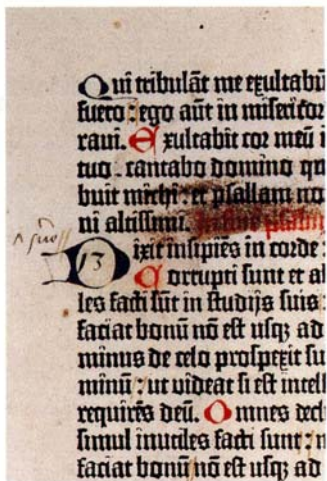 Qui tribulāt me exultabū
fuero : ego aūt in misericor
raui. Exultabit cor meū i
tuo . cantabo domino qu
buit michi : et psallam no
ni altissimi.
13 Dixit insipiēs in corde :
Corrupti sunt et ab
les facti sūt in studijs suis
faciat bonū nō est usqꝫ ad
minus de celo prospexit su
minū : ut videat si est intell
requirēs deū. Omnes decl
simul inutiles facti sunt : n
faciat bonū nō est usqꝫ ad